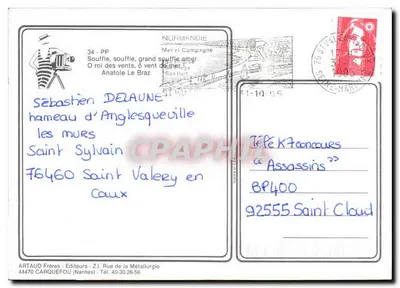 34 - PP
Souffle, souffle, grand souffle amer
O roi des vents, ô vent de mer
Anatole Le Braz
NORMANDIE
Mer et Campagne
31-10-95
Sébastien DELAUNE
hameau d'Anglesqueville
les murs
Saint Sylvain
76460 Saint Valery en
Caux
Télé K7 concours
"Assassins"
BP400
92555 Saint Cloud
CPAPHIL
ARTAUD Frères - Editeurs - Z.I. Rue de la Métallurgie
44470 CARQUEFOU (Nantes) - Tél. 40-30-26-56